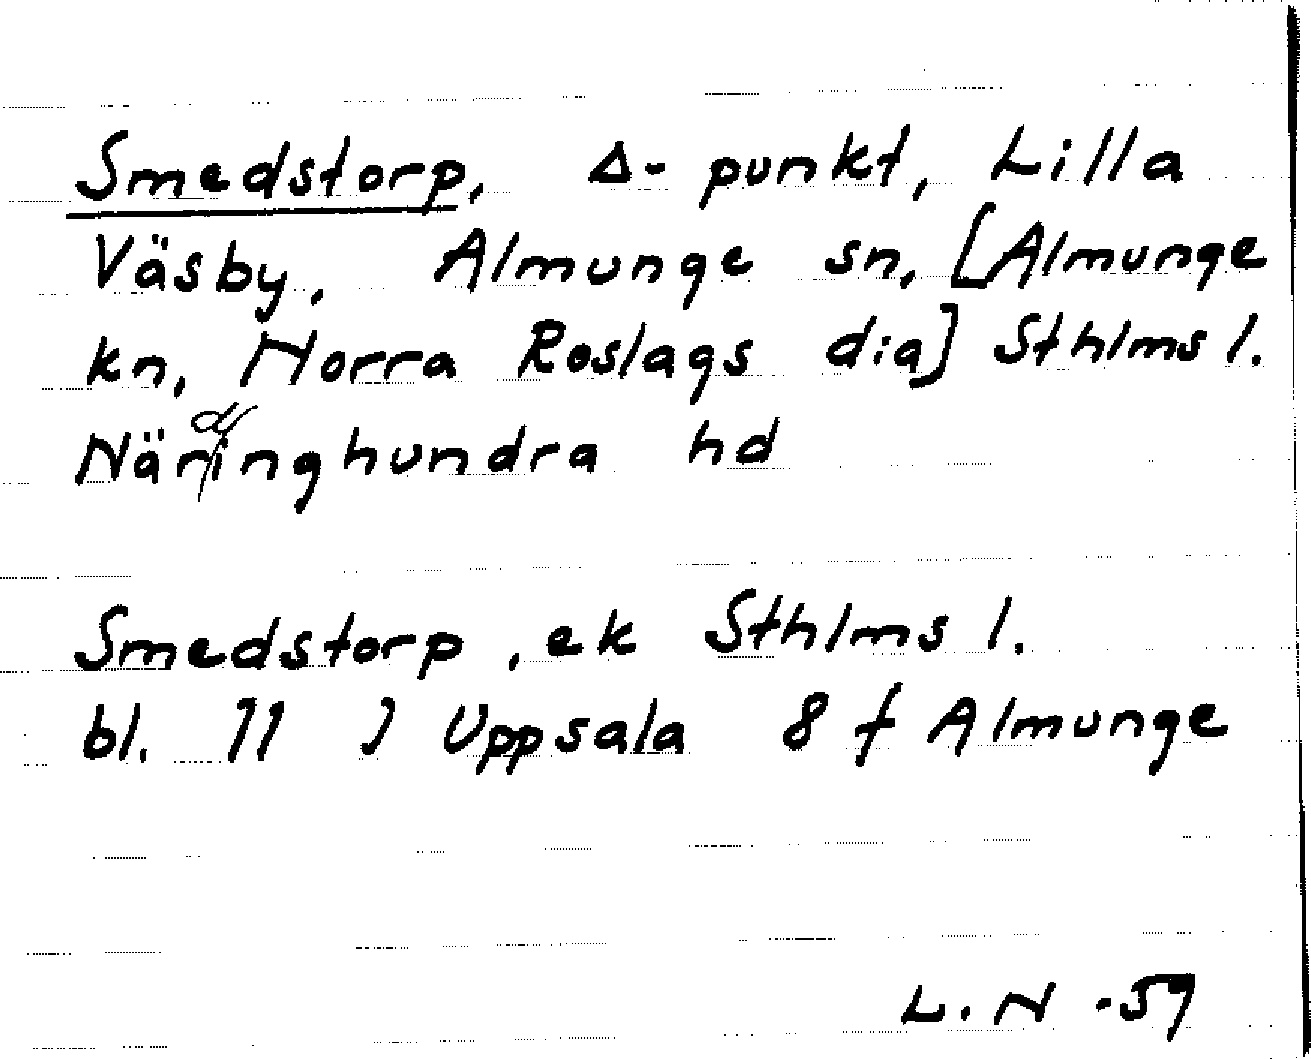 Smedstorp, Δ- punkt, Lilla
Väsby, Almunge sn, [Almunge
kn, Norra Roslags dia] Sthlms l.
Närdinghundra hd
Smedstorp, ek Sthlms l.
bl. 11 J Uppsala 8 f Almunge
L. N -59